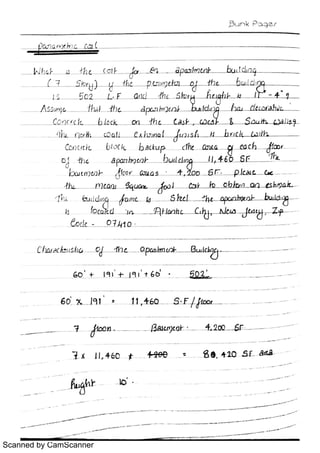 Blank Page
Parametric cost
What is the cost for an apartment building
(7 Story) if the perimeter of the building
is 502 L.F and the Story height is 11' - 4".
Assume that the apartment building has decorative
Concrete block on the East, West & South walls
The north wall external finish is brick with
Concrete block backup the area of each floor
of the apartment building 11,460 SF. The
basement floor areas 4,200 SF. please use
the means Square foot cost to obtain an estimate.
The building frame is Steel the apartment building
is located in Atlantic City, New Jersey, Zip
Code - 07410
Characteristic of the apartment Building.
60' + 191' + 191' + 60' = 502'
60' x 191' = 11,460 S.F / floor
7 floors. Basement = 4,200 SF
7 x 11,460 + 4200 = 80,420 SF
height 10'
Scanned by CamScanner